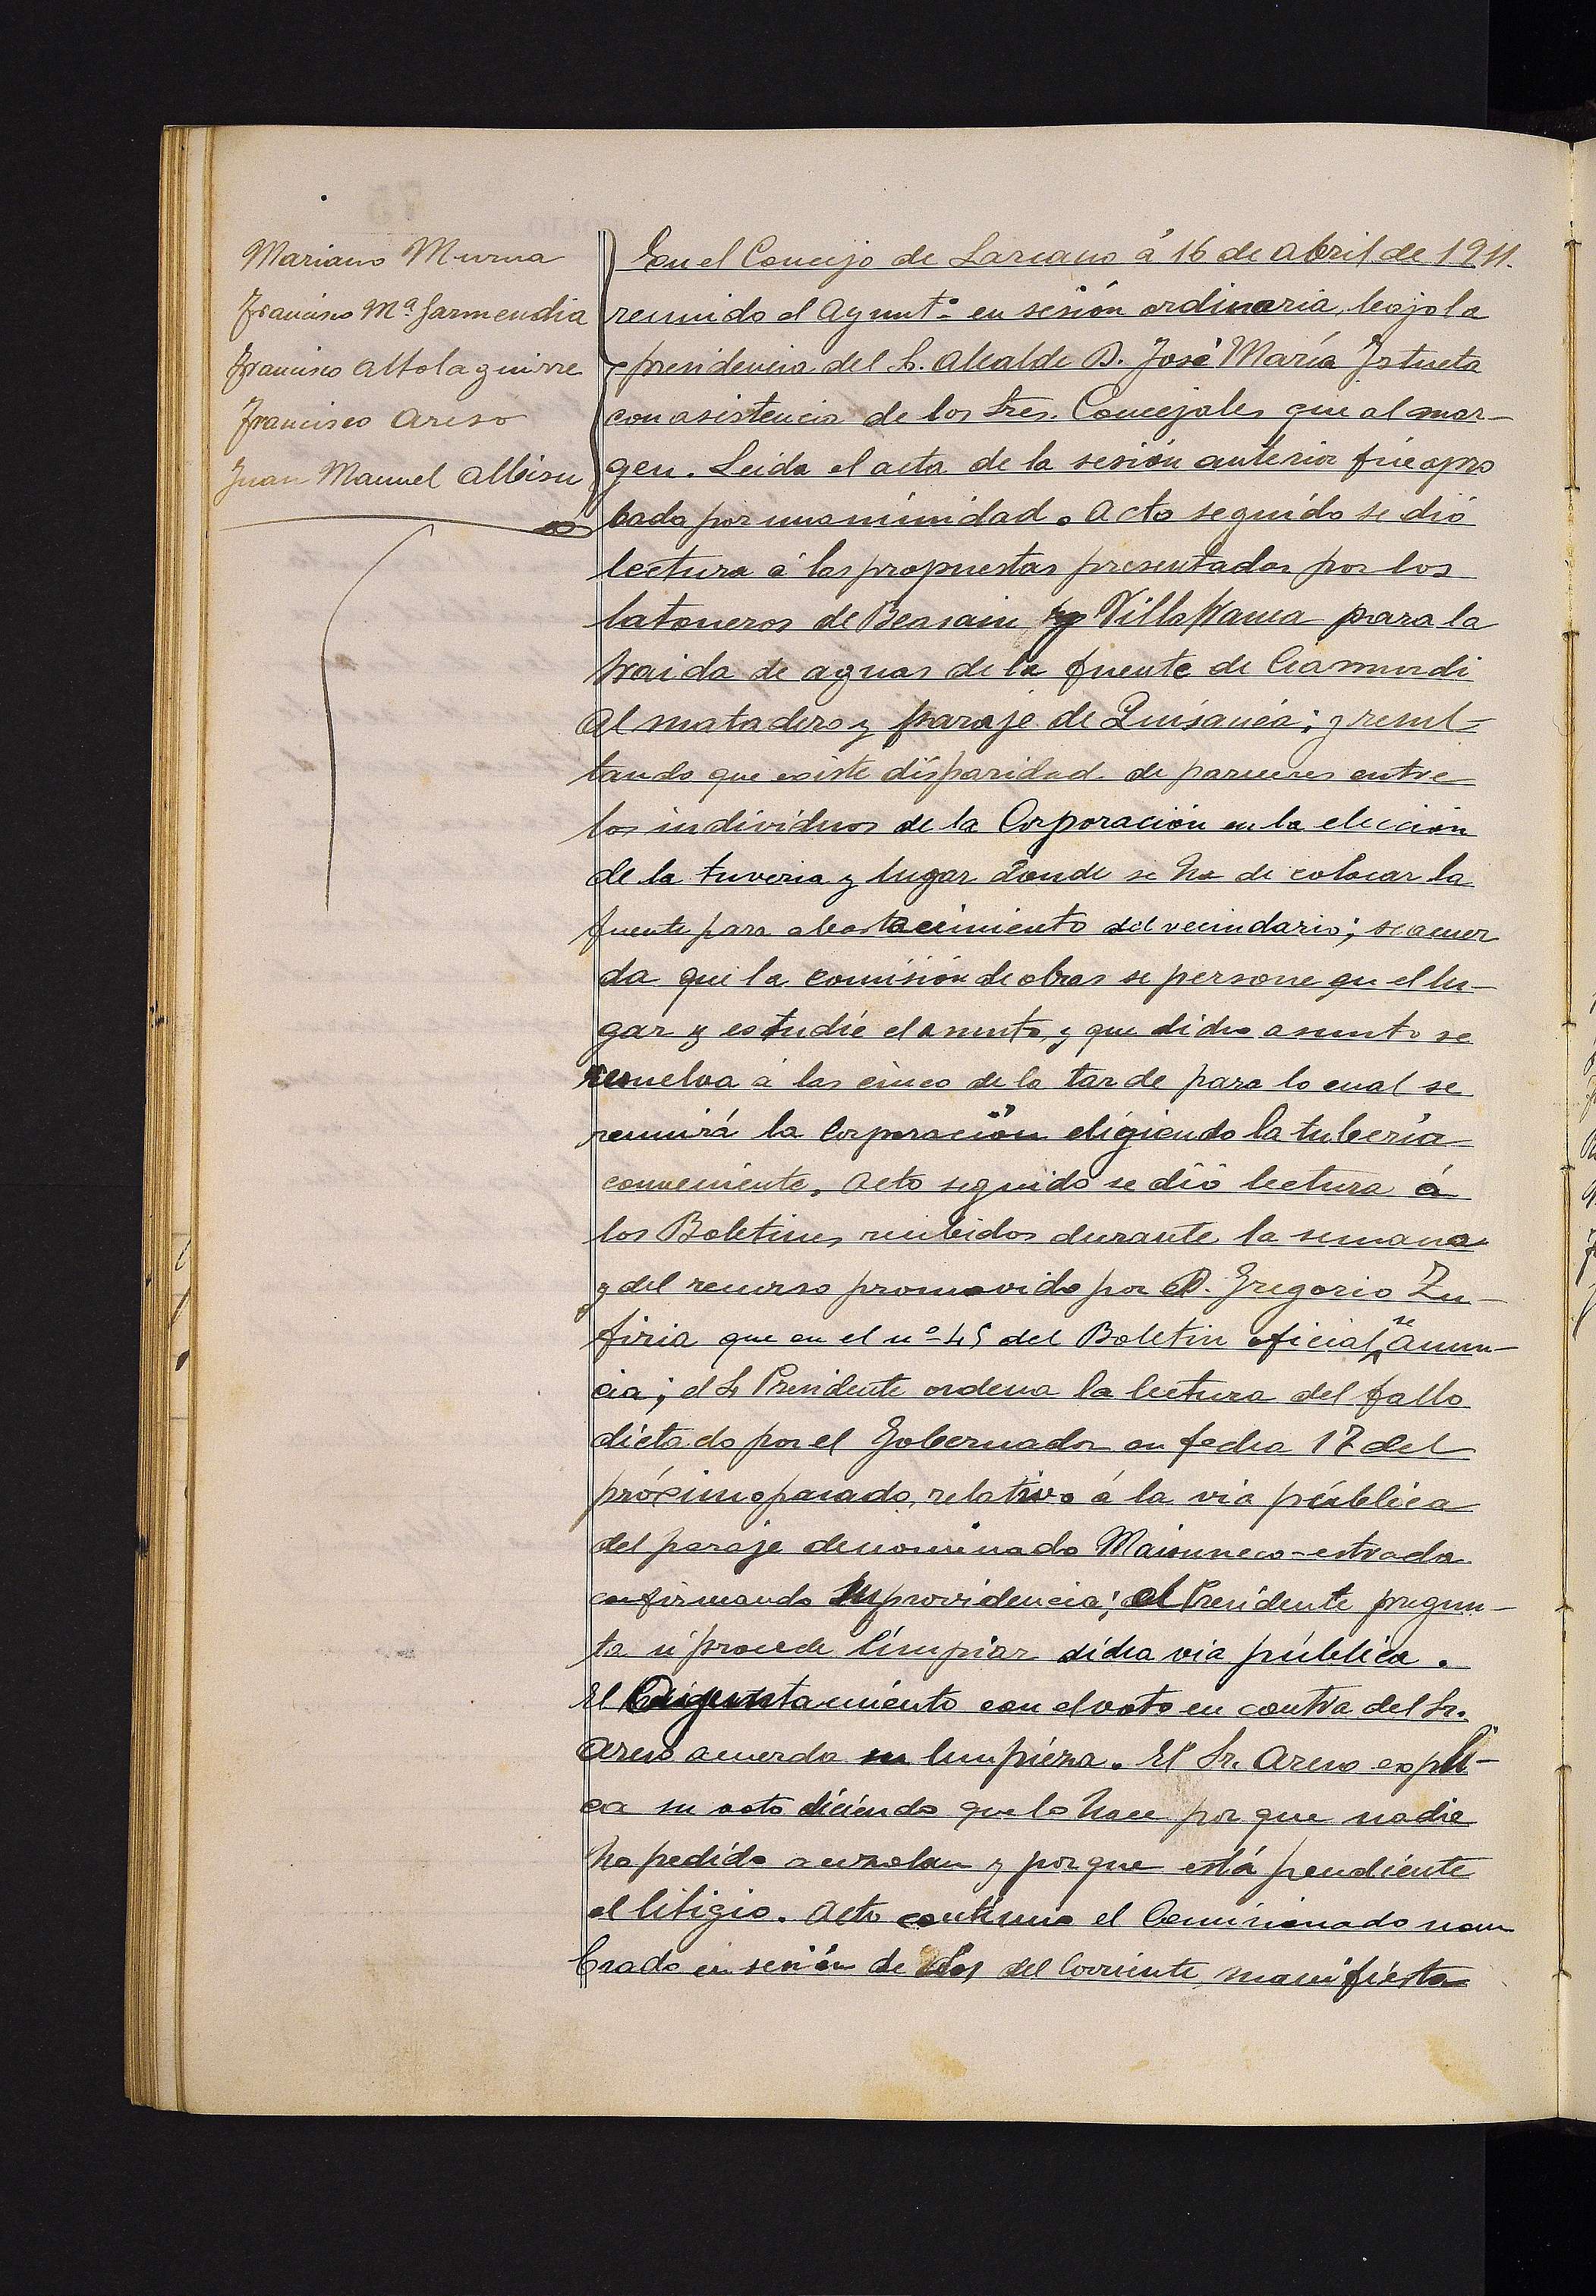 Mariano Murua
Francisco Mª Garmendia
Francisco Altolaguirre
Francisco Areso
Juan Manuel Albisu
En el Concejo de Lazcano á 16 de Abril de 1911.
reunido el Ayuntº en sesión ordinaria, bajo la
presidencia del S. Alcalde D. José María Iztueta
con asistencia de los Sres. Concejales que al mar-
gen. Leida el acta de la sesión anterior fué apro
bada por unanimidad. Acto seguido se dió
lectura á las propuestas presentadas por los
latoneros de Beasain y Villafranca para la
traida de aguas de la fuente de
al matadero y paraje de; y resul-
tando que existe disparidad de pareceres entre
los individuos de la Corporación en la elección
de la tuveria y lugar donde se ha de colocar la
fuente para abastecimiento del vecindario; se acuer
da que la comisión de obras se persone en el lu-
gar y estudie el asunto, y que dicho asunto se
resuelva á las cinco de la tarde para lo cual se
reunirá la Corporación eligiendo la tubería
conveniente. Acto seguido se dió lectura á
los Boletines recibidos durante la semana
y del recurso promovido por D. Gregorio Zu-
firia que en el nº 45 del Boletin oficial se anun-
cia; el Sr Presidente ordena la lectura del fallo
dictado por el Gobernador en fecha 17 del
próximo pasado, relativo á la via pública
del paraje denominado -estrada
confirmando su providencia; el Presidente pregun-
ta si procede limpiar dicha via pública.
El Ayuntamiento con el voto en contra del Sr.
Areso acuerda su limpieza. El Sr. Areso expli-
ca su voto diciendo que lo hace por que nadie
ha pedido y porque está pendiente
el litigio. Acto continuo el Comisionado nom
brado en sesión de dos del corriente manifiesta